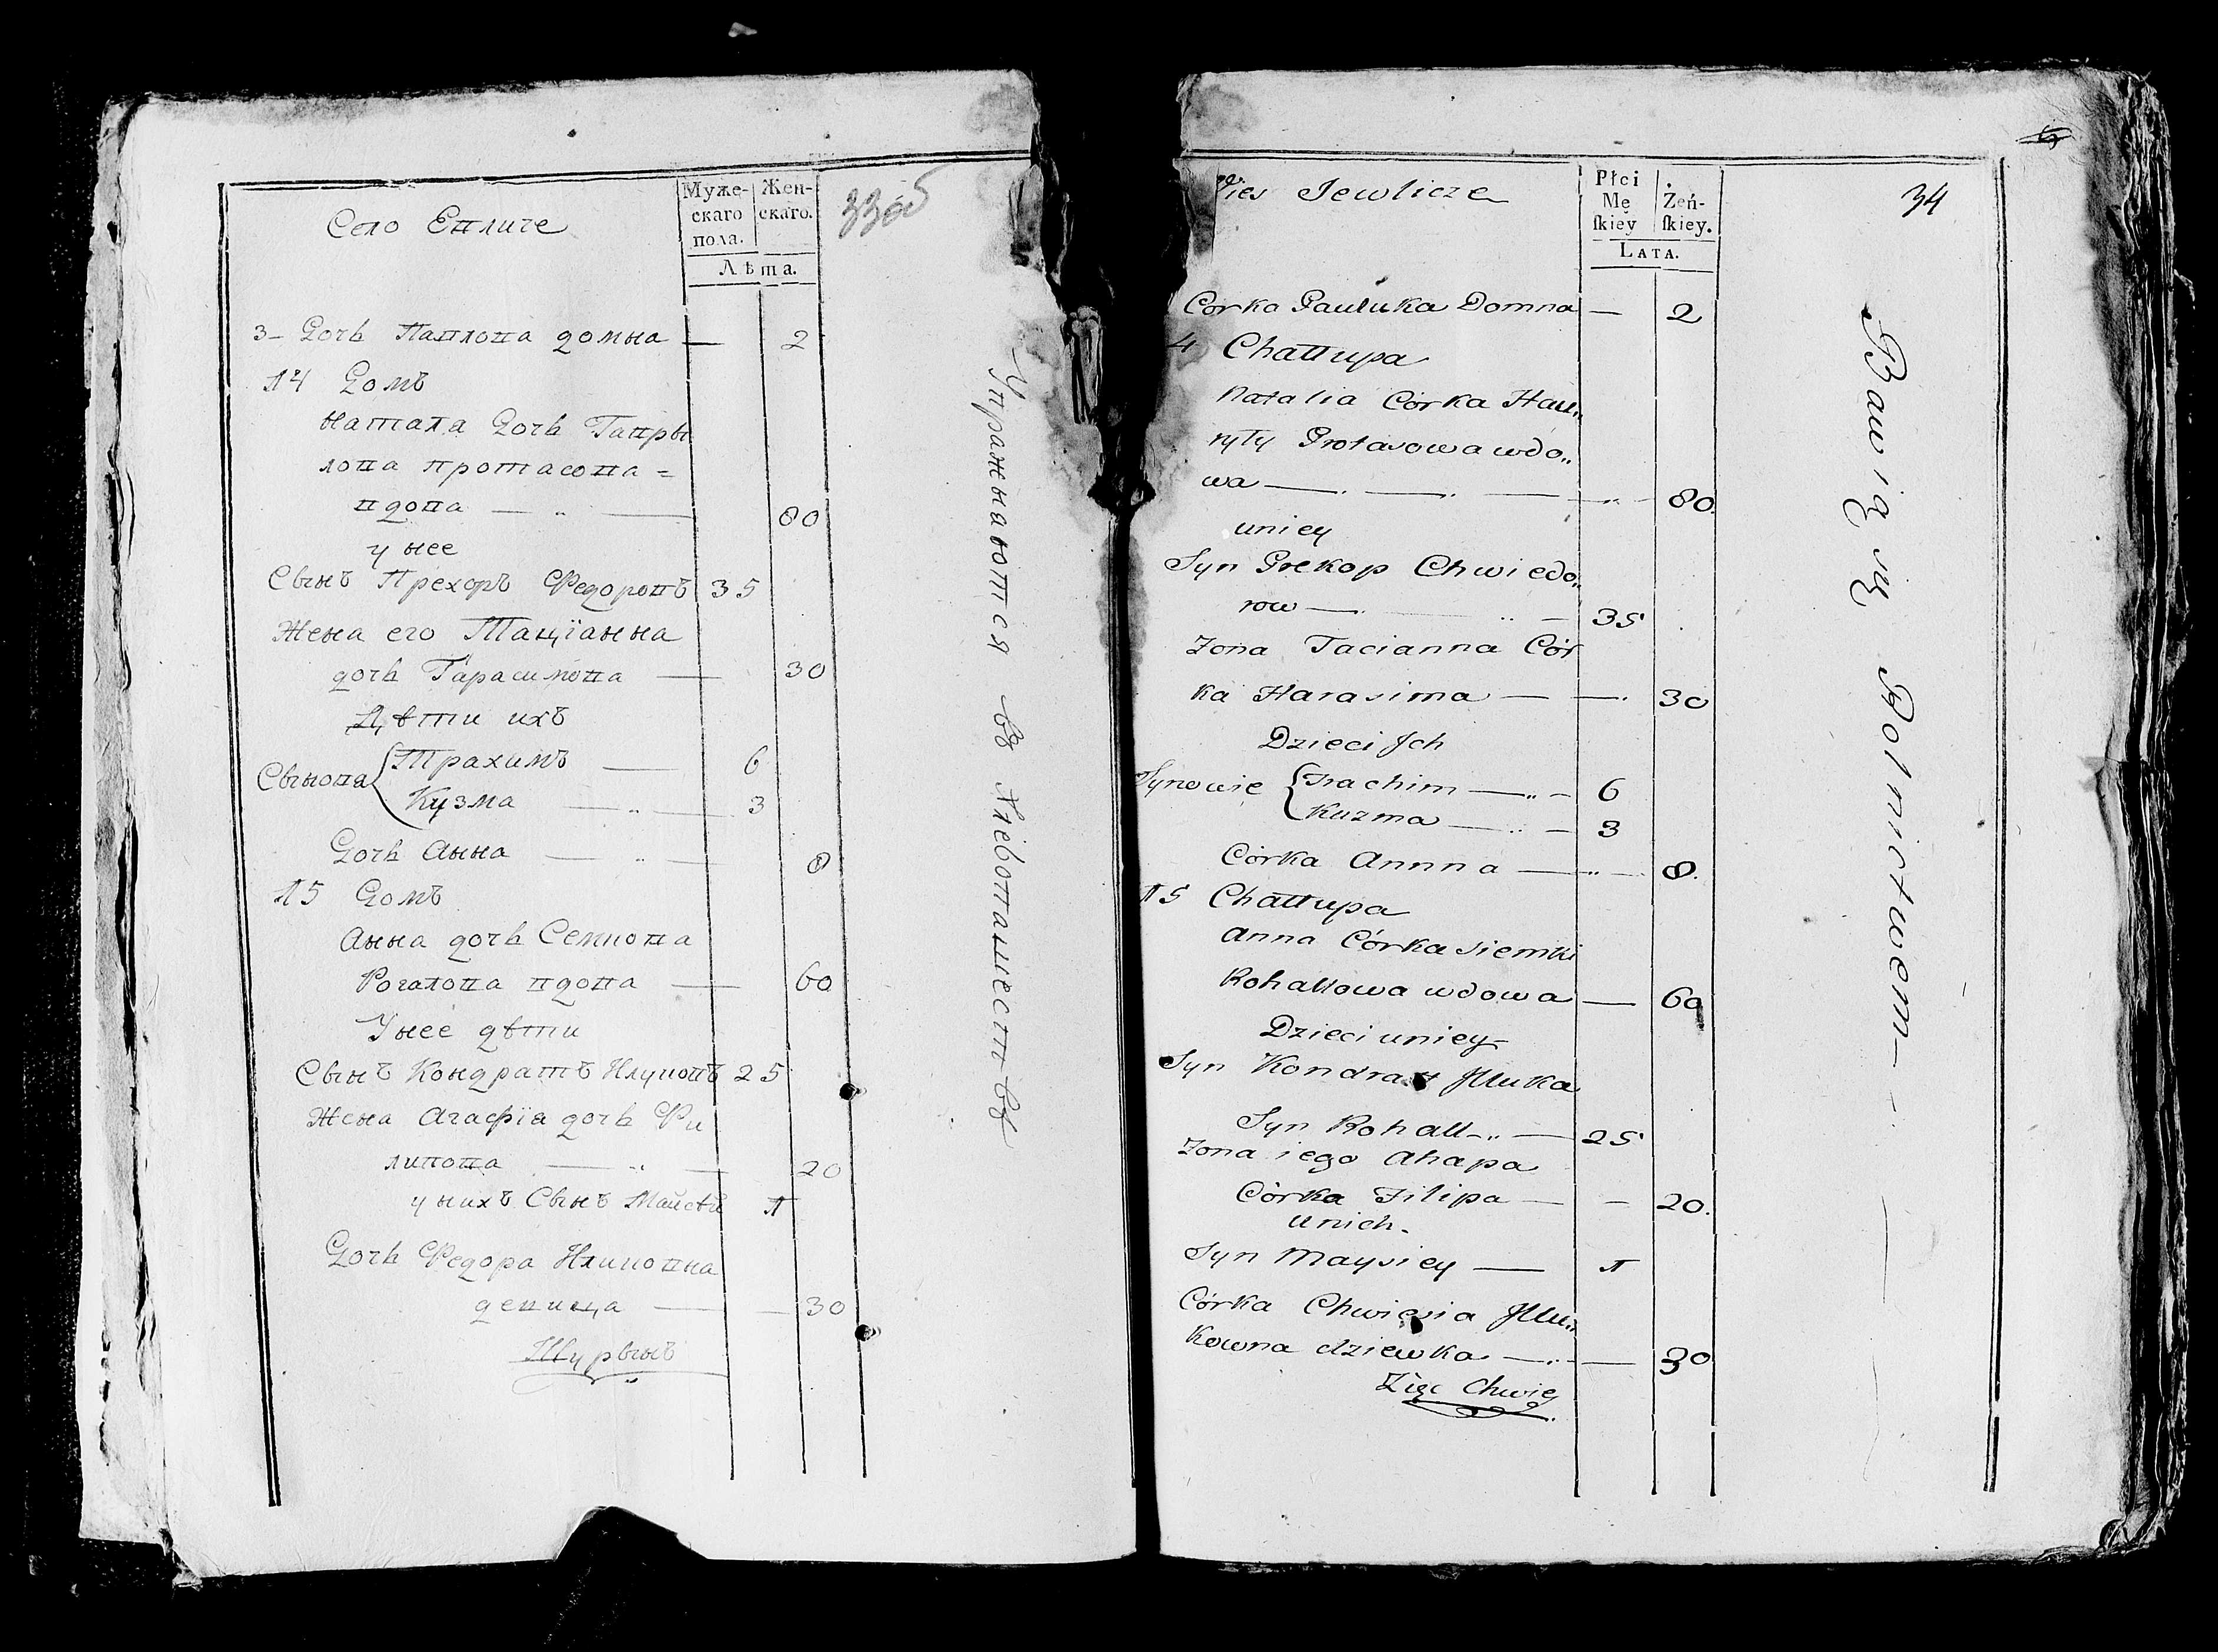 Село Евличе
Муже-
скаго
пола.
Жен-
скаго.
Лѣта.
33об
3 – Дочь Павлова домна — 2
14 Домъ
натала Дочь Гаври
лова протасова =
вдова — „ — 80
у нее
Сынъ Прехоръ Федоровъ 35
Жена его Тацїанна
дочь Гарасимова — 30
Дѣти ихъ
Сынова { Трахимъ — 6
Кузма — „ — 3
Дочь Анна — „ — 8
15 Домъ
Анна дочь Семиова
Рогалова вдова — 60
У нее дѣти
Сынъ Кондратъ Илуковъ 25
Жена Агафїа дочь Фи
липова — „ — 20
у нихъ Сынъ Майсѣй 1
Дочь Федора Илиновна
девица — 30
Упражнаются въ Хлебопашествѣ
Wies Jewlicze
Płci
Mę
ſkiey
Żeń-
ſkiey.
LATA.
34
Corka Pauluka Domna — 2
4 Chałłupa
Natalia Córka Hau„
ryły Protasowa wdo„
wa — . — . — „ 80.
uniey
Syn Prekop Chwiedo„
row — . „ — 35
Zona Tacianna Cór
ka Harasima — — . 30
Dzieci Jch
Synowie { Trachim — „ – 6
Kuzma — „ – 3
Córka Annna — „ — 8.
15 Chałłupa
Anna Córka Siemki
Rohallowa wdowa — 60
Dzieci uniey
Syn Kondrat Jlluka
Syn Rohall – „ — 25
Zona iego Ahapa
Córka Filipa — – 20.
unich.
Syn Maysiey — 1
Córka Chwiesia Jllu„
kowna dziewka — „ — 30
Bawią się Rolnictwem